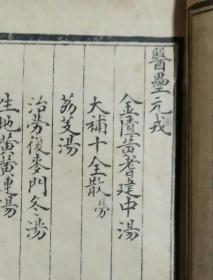 醫壘元戎
金匱黃耆建中湯
大補十全散
荔芰湯
治勞後麥門冬湯
生地黃黃連湯